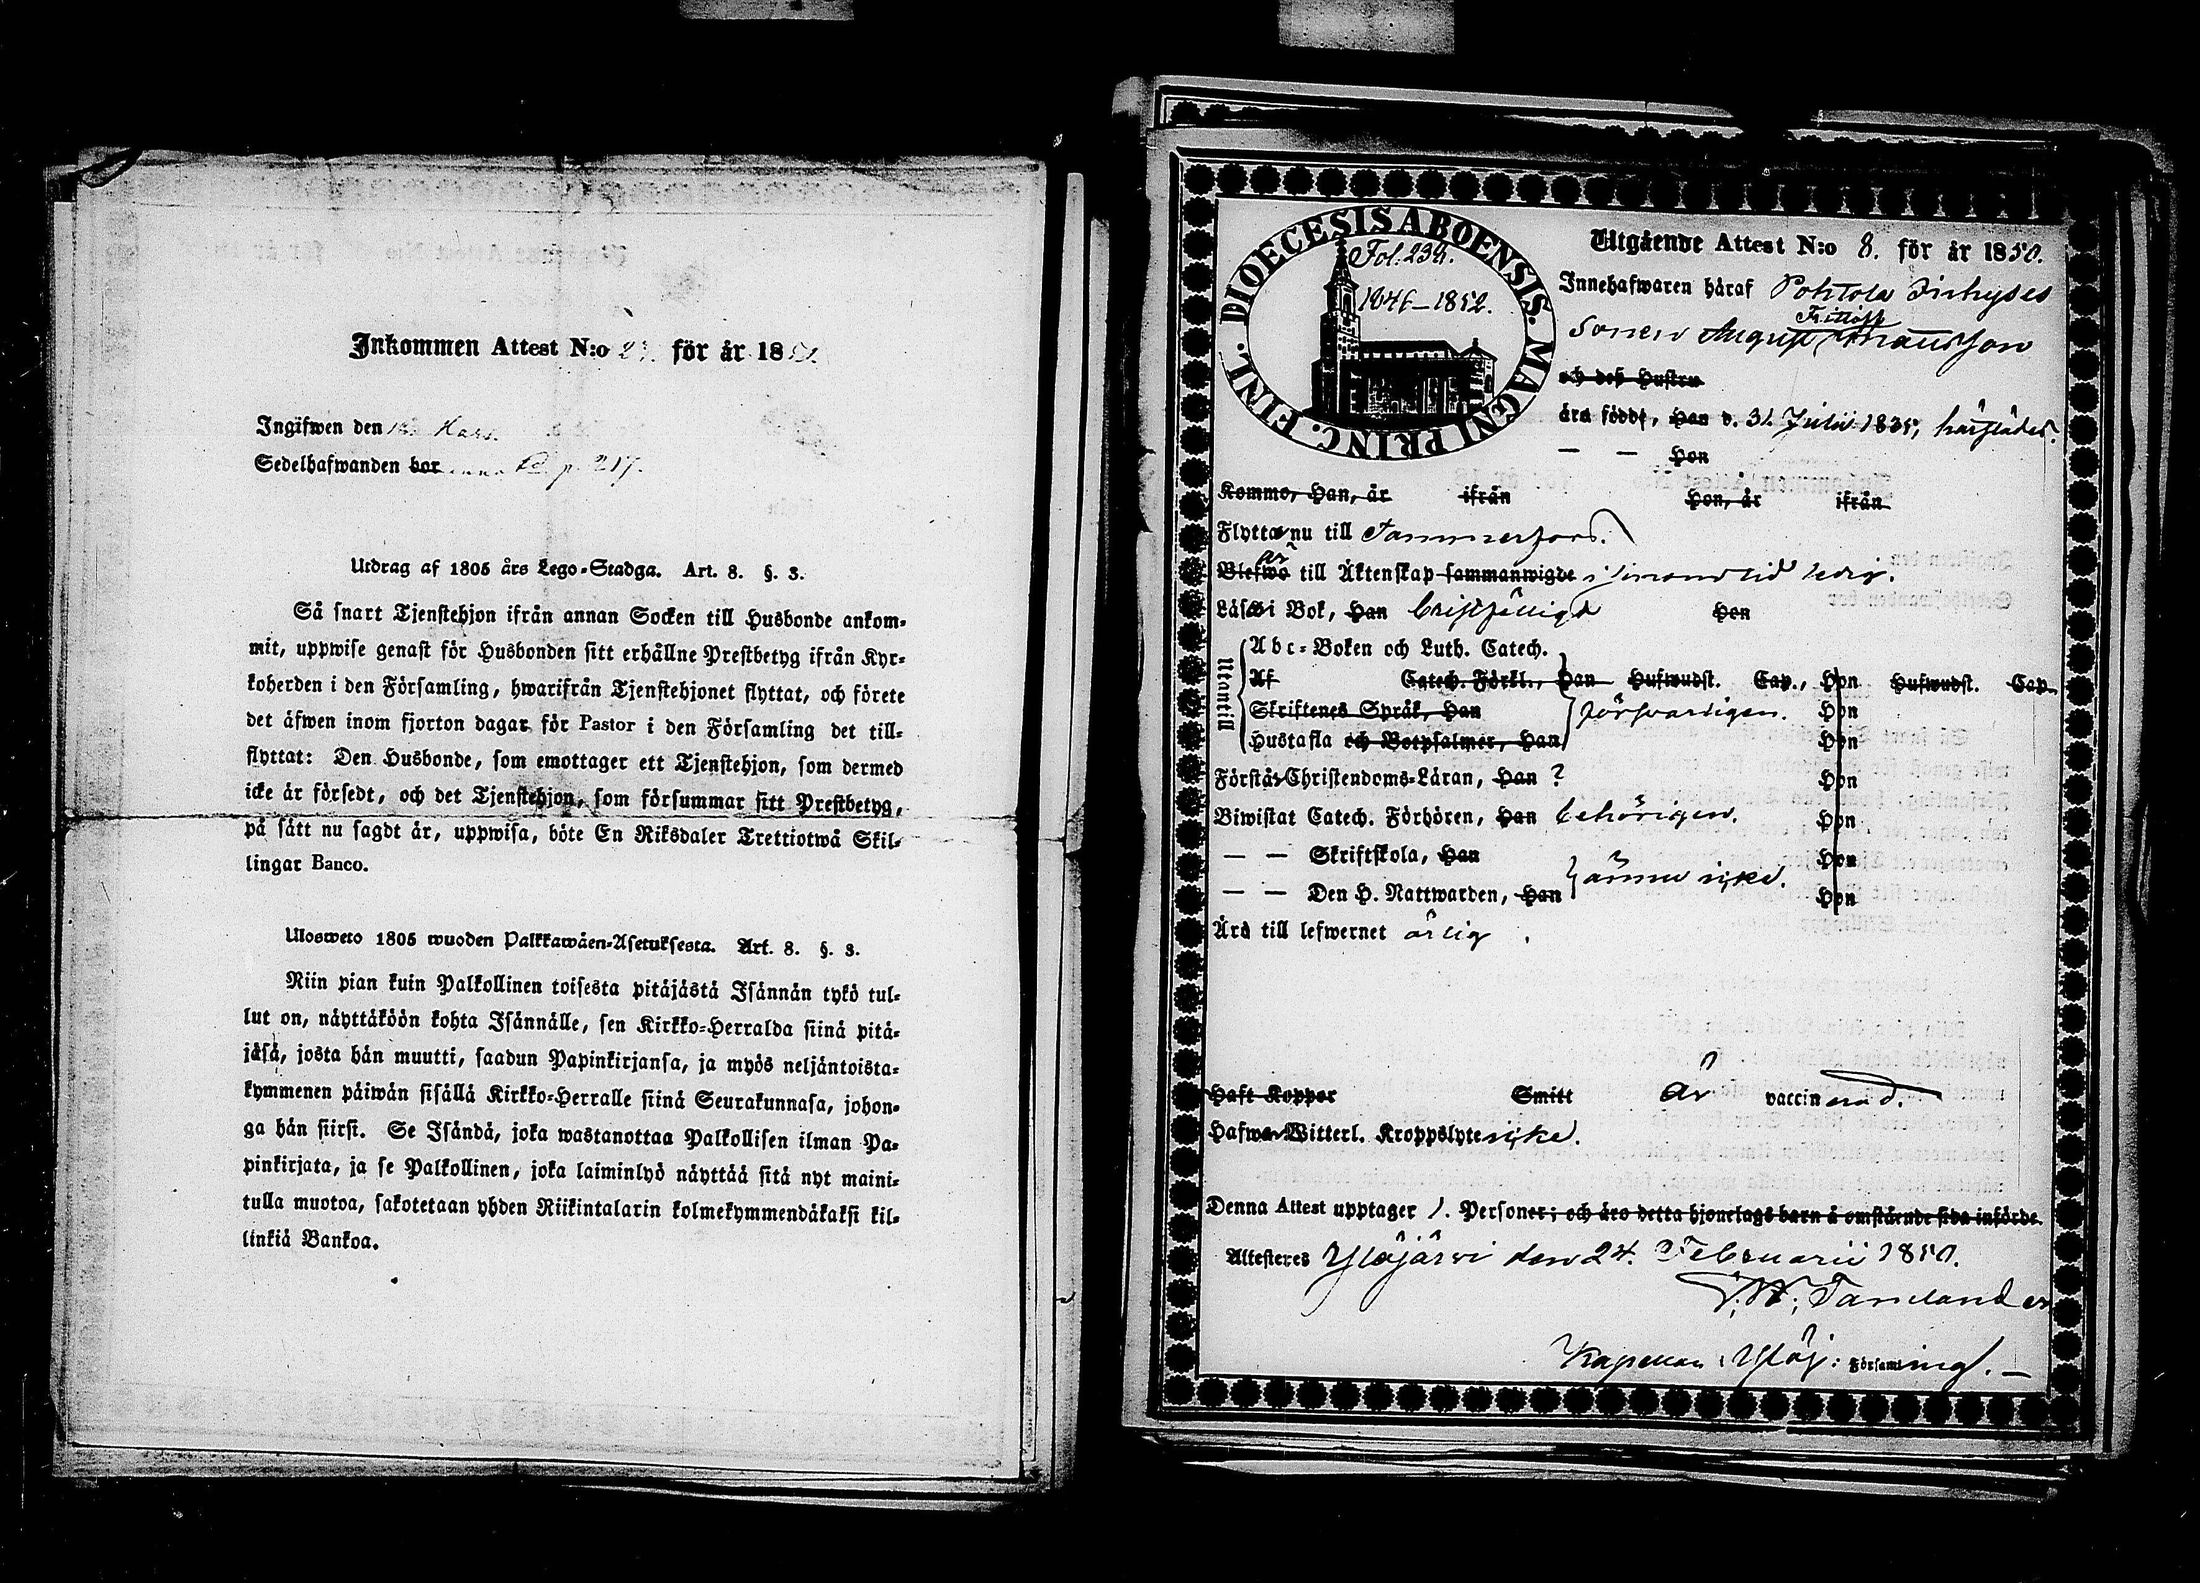 Inkommen Attest N:o för år 18
Ingifwen den
Sedelhafwanden bor p. 217.
Utdrag af 1805 års Lego-Stadga. Art. 8. §. 3.
Så snart Tjenstehjon ifrån annan Socken till Husbonde ankom-
mit, uppwise genast för Husbonden sitt erhållne Prestbetyg ifrån Kyr-
koherden i den Församling, hwarifrån Tjenstehjonet flyttat, och förete
det äfwen inom fjorton dagar för Pastor i den Församling det till-
flyttat: Den Husbonde, som emottager ett Tjenstehjon, som dermed
icke är försedt, och det Tjenstehjon, som försummar sitt Prestbetyg,
på sätt nu sagdt är, uppwisa, böte En Riksdaler Trettiotwå Skil-
lingar Banco.
Ulosweto 1805 wuoden Palkkawäen-Asetuksesta. Art. 8. §. 3.
Niin pian kuin Palkollinen toisesta pitäjästä Isännän tykö tul-
lut on, näyttäköön kohta Isännälle, sen Kirkko-Herralda siinä pitä-
jäsä, josta hän muutti, saadun Papinkirjansa, ja myös neljäntoista-
kymmenen päiwän sisällä Kirkko-Herralle siinä Seurakunnasa, johon-
ga hän siirsi. Se Isändä, joka wastanottaa Palkollisen ilman Pa-
pinkirjata, ja se Palkollinen, joka laiminlyö näyttää sitä nyt maini-
tulla muotoa, sakotetaan yhden Riikintalarin kolmekymmendäkaksi kil-
linkiä Bankoa.
DIOECESIS ABOENSIS. MAGNI PRINC. FINL.
Fol. 234.
1846–1852.
Utgående Attest N:o 8. för år 1850.
Innehafwaren häraf Pohtola
sonen August Fritioff
och deß Hustru
äro född, Han d. 31 Julii 1835, härstädes.
— — Hon
Kommo, Han, år ifrån Hon, år ifrån
Flytta nu till Tammerfors.
Blefwo till Äktenskap sammanwigde ledig.
Läsa i Bok, Han Hon
Utantill
Abc-Boken och Luth. Catech.
Af Catech. Förkl., Han Hufwudst. Cap., Hon Hufwudst. Cap.
Skriftenes Språk, Han försvarligen. Hon
Hustafla och Botpsalmer, Han Hon
Förstår Christendoms-Läran, Han ? Hon
Biwistat Catech. Förhören, Han behörigen. Hon
— — Skriftskola, Han Hon
ännu icke.
— — Den H. Nattwarden, Han Hon
Äro till lefwernet ärlig.
Haft Koppor Smitt är vaccinerad.
Hafwa Witterl. Kroppslyte icke.
Denna Attest upptager 1. Personer; och äro detta hjonelags barn å omstående sida införde.
Attesteres Ylöjärwi den 24. Februarii 1850.
Kapellan i Ylöj: Församling. —